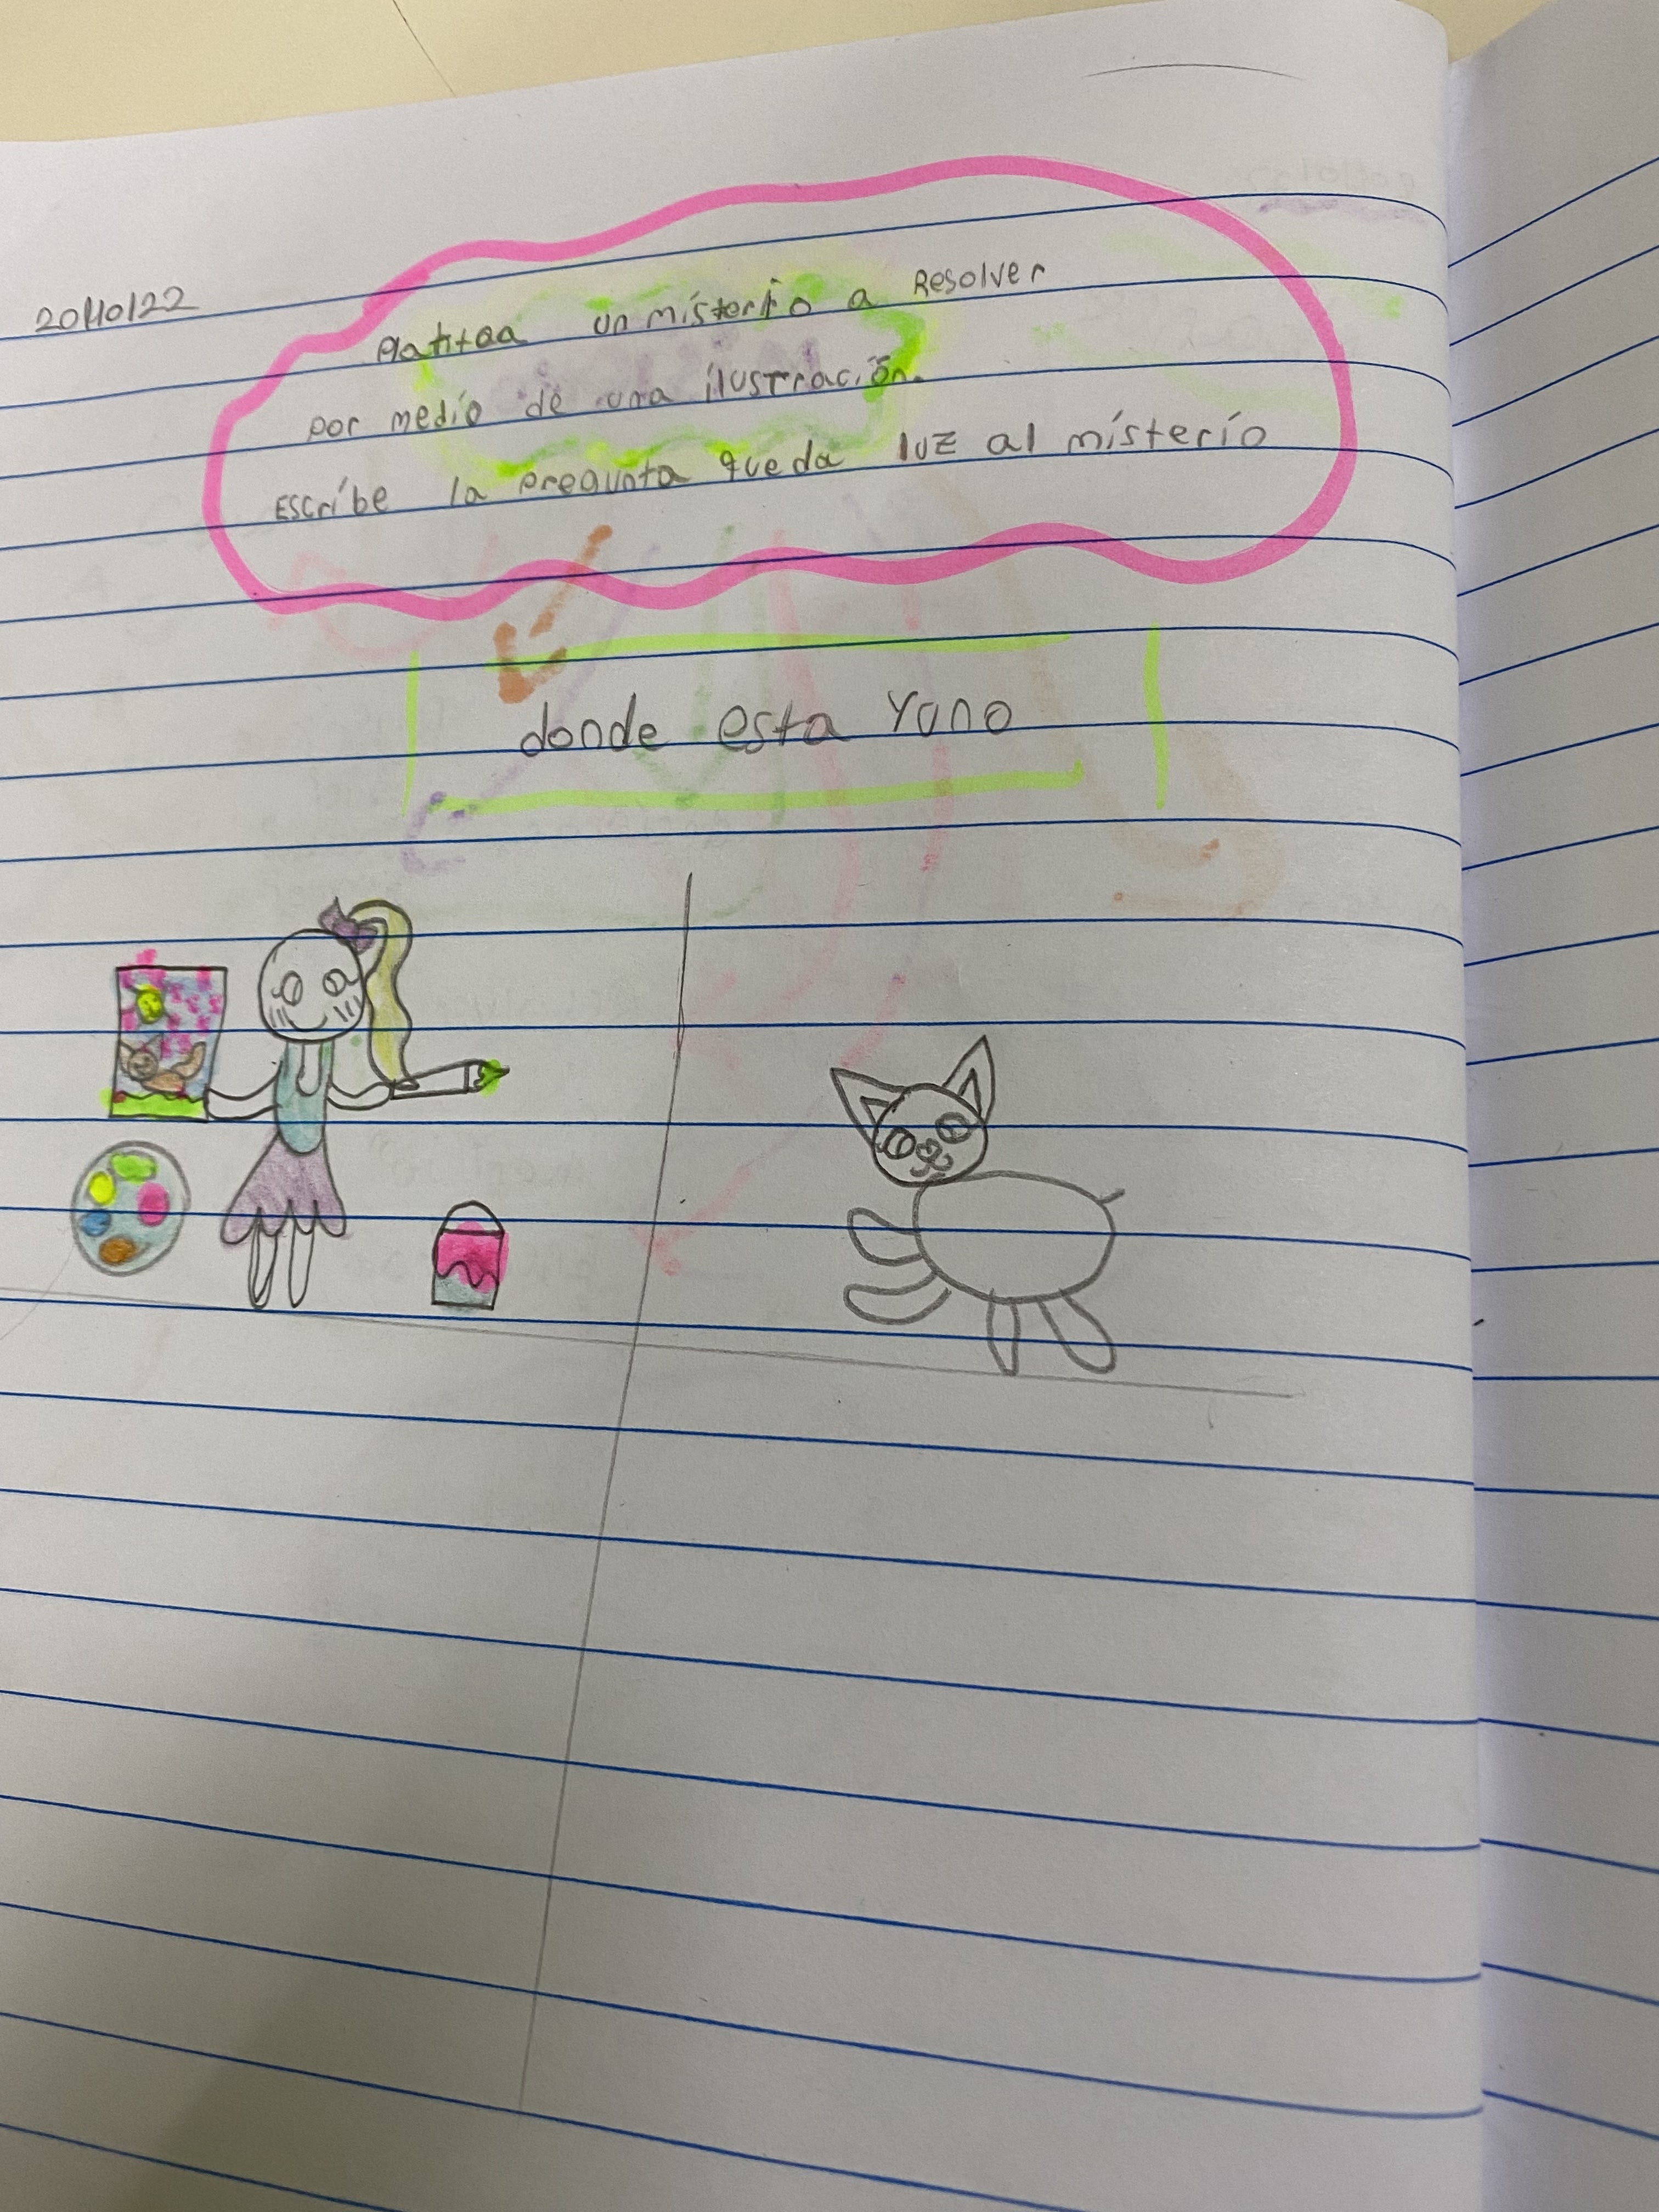 20/10/22
un misterio a Resolver
por medio de una ilustración.
Escribe la pregunta que da luz al misterio
donde esta Yuno